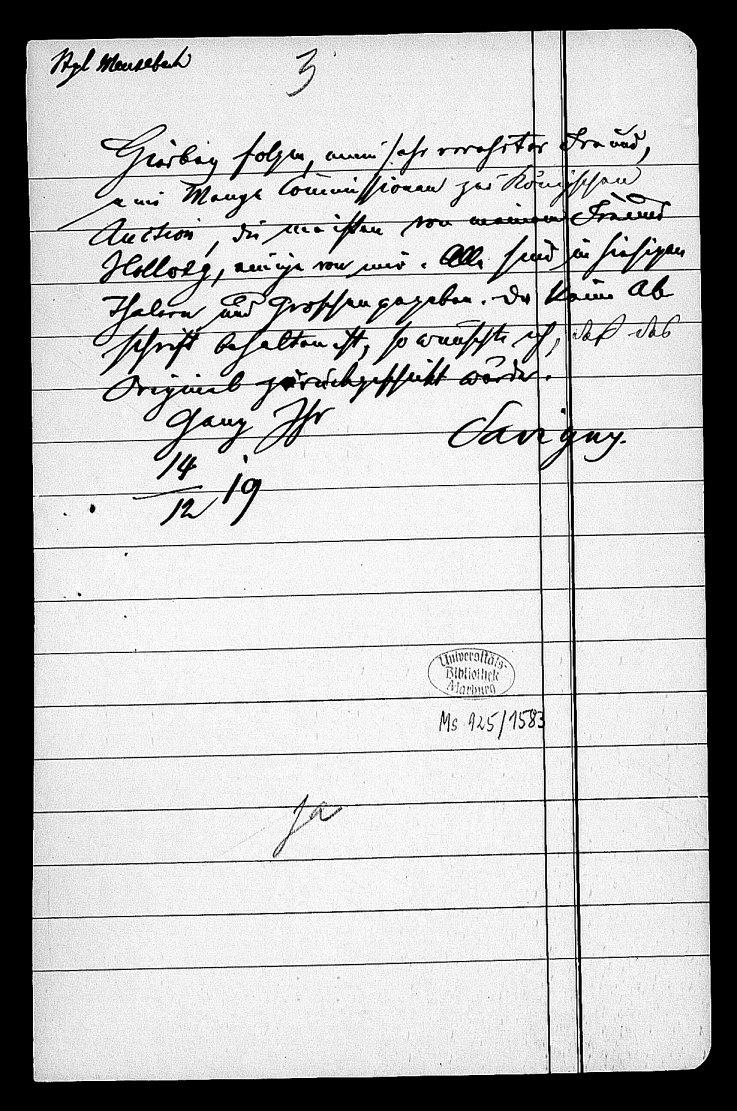 Meusebach
3
Hierbey folgen, mein sehr verehrter Freund,
eine Menge Commissionen zur Königschen
Auction, die meisten von meinem Freund
Hollweg, einige von mir. Alle sind in hiesigen
Thalern und Groschen gegeben. Da keine Ab
schrift behalten ist, so wünschte ich, daß das
Original zurückgeschickt würde.
Ganz Ihr
Savigny.
14
12 19
Universitäts-
Bibliothek
Marburg
Ms 925/1583
Ja